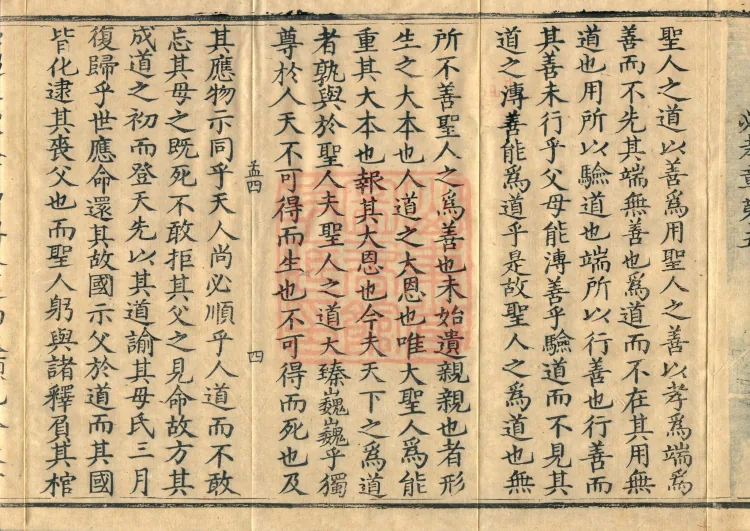 必孝章第五
聖人之道以善爲用聖人之善以孝爲端爲
善而不先其端無善也爲道而不在其用無
道也用所以驗道也端所以行善也行善而
其善未行乎父母能溥善乎驗道而不見其
道之溥善能爲道乎是故聖人之爲道也無
所不善聖人之爲善也未始遺親親也者形
生之大本也人道之大恩也唯大聖人爲能
重其大本也報其大恩也今夫天下之爲道
者孰與於聖人夫聖人之道大臻巍巍乎獨
尊於人天不可得而生也不可得而死也及
孟四
四
其應物示同乎天人尚必順乎人道而不敢
忘其母之既死不敢拒其父之見命故方其
成道之初而登天先以其道諭其母氏三月
復歸乎世應命還其故國示父於道而其國
皆化逮其喪父也而聖人躬與諸釋負其棺